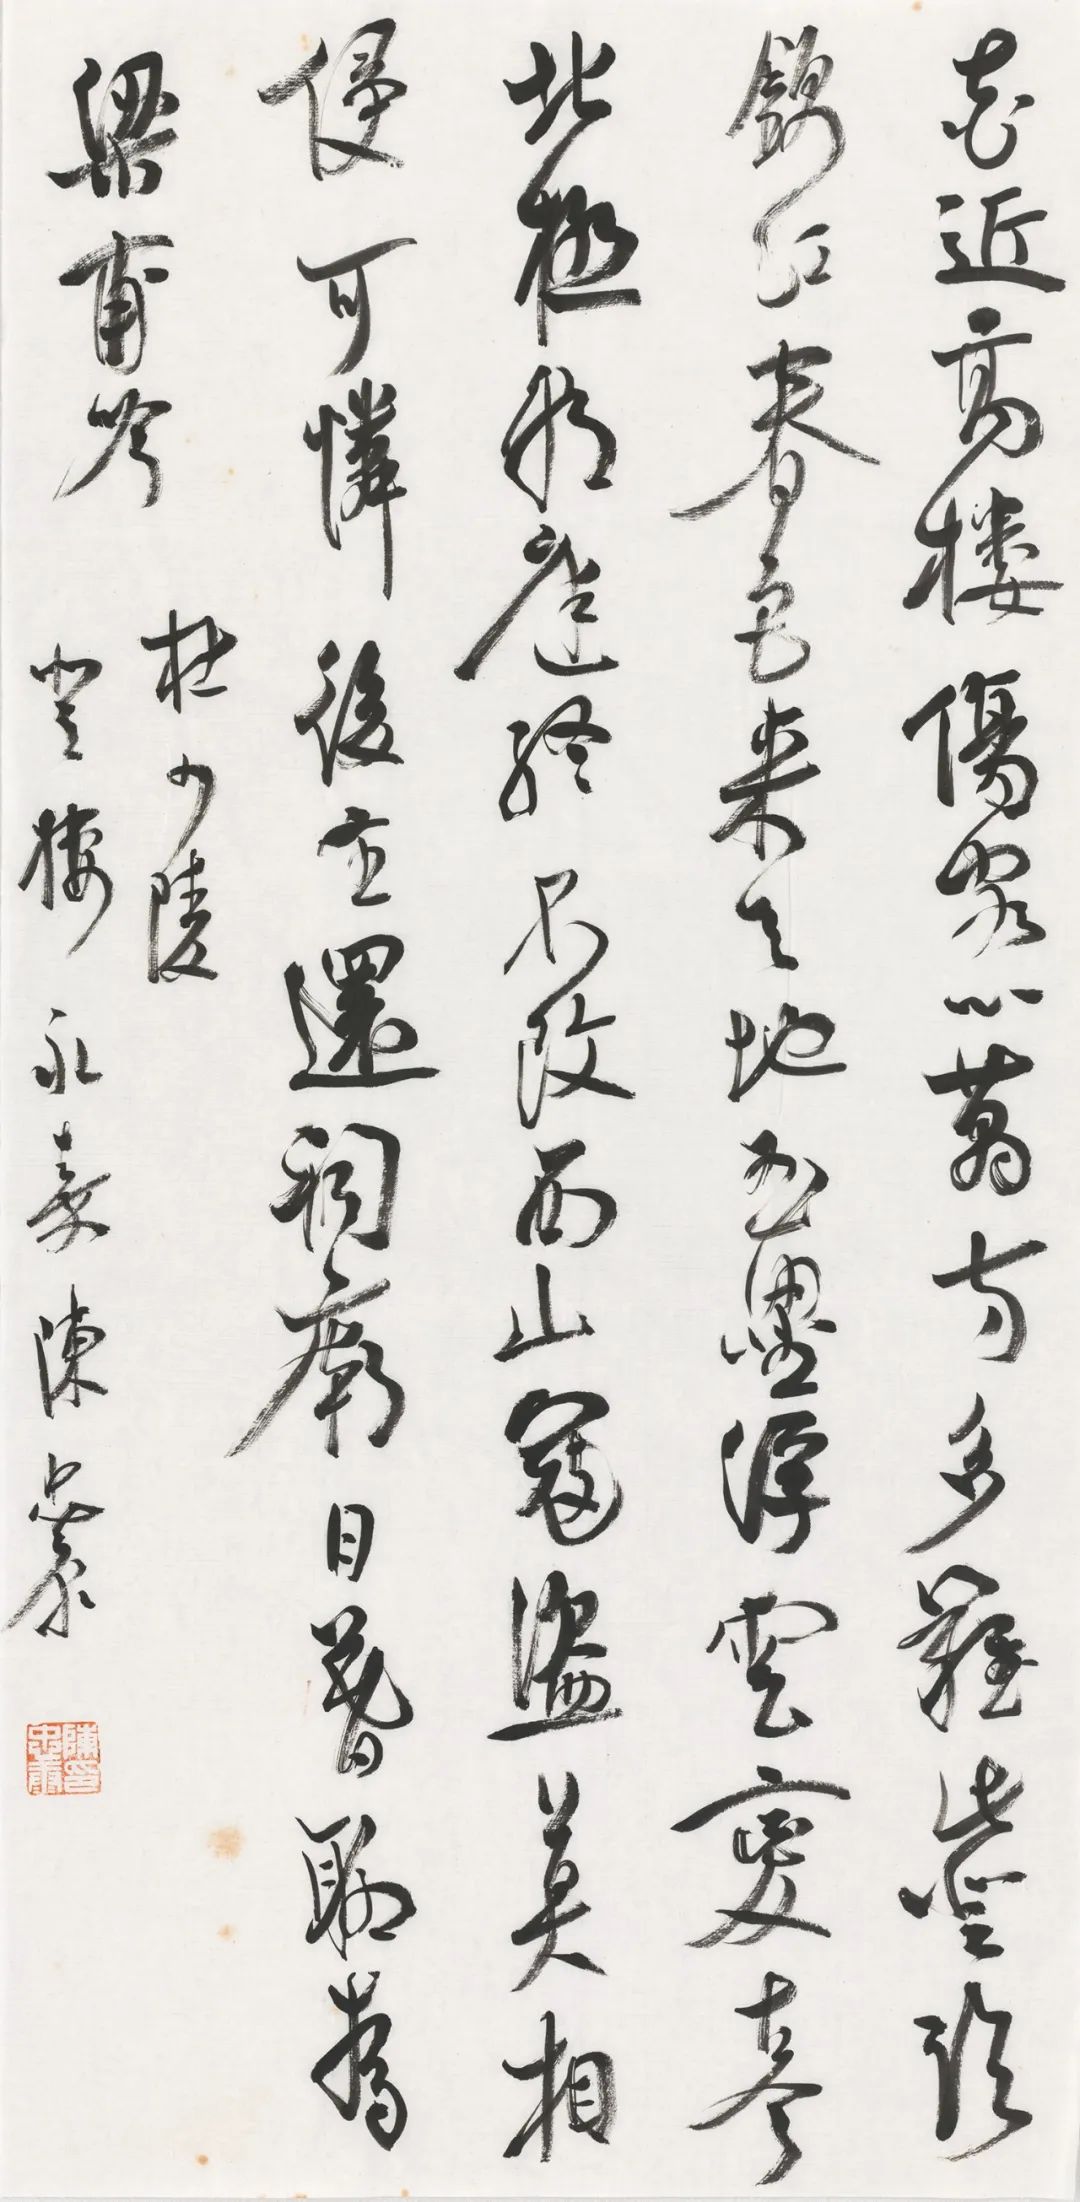 花近高楼傷客心萬方多難此登臨
錦江春色來天地玉壘浮雲變古今
北極朝廷終不改西山寇盜莫相
侵可憐後主還祠廟日暮聊為
梁甫吟
杜少陵
登樓永嘉陳忠康
陳印忠康